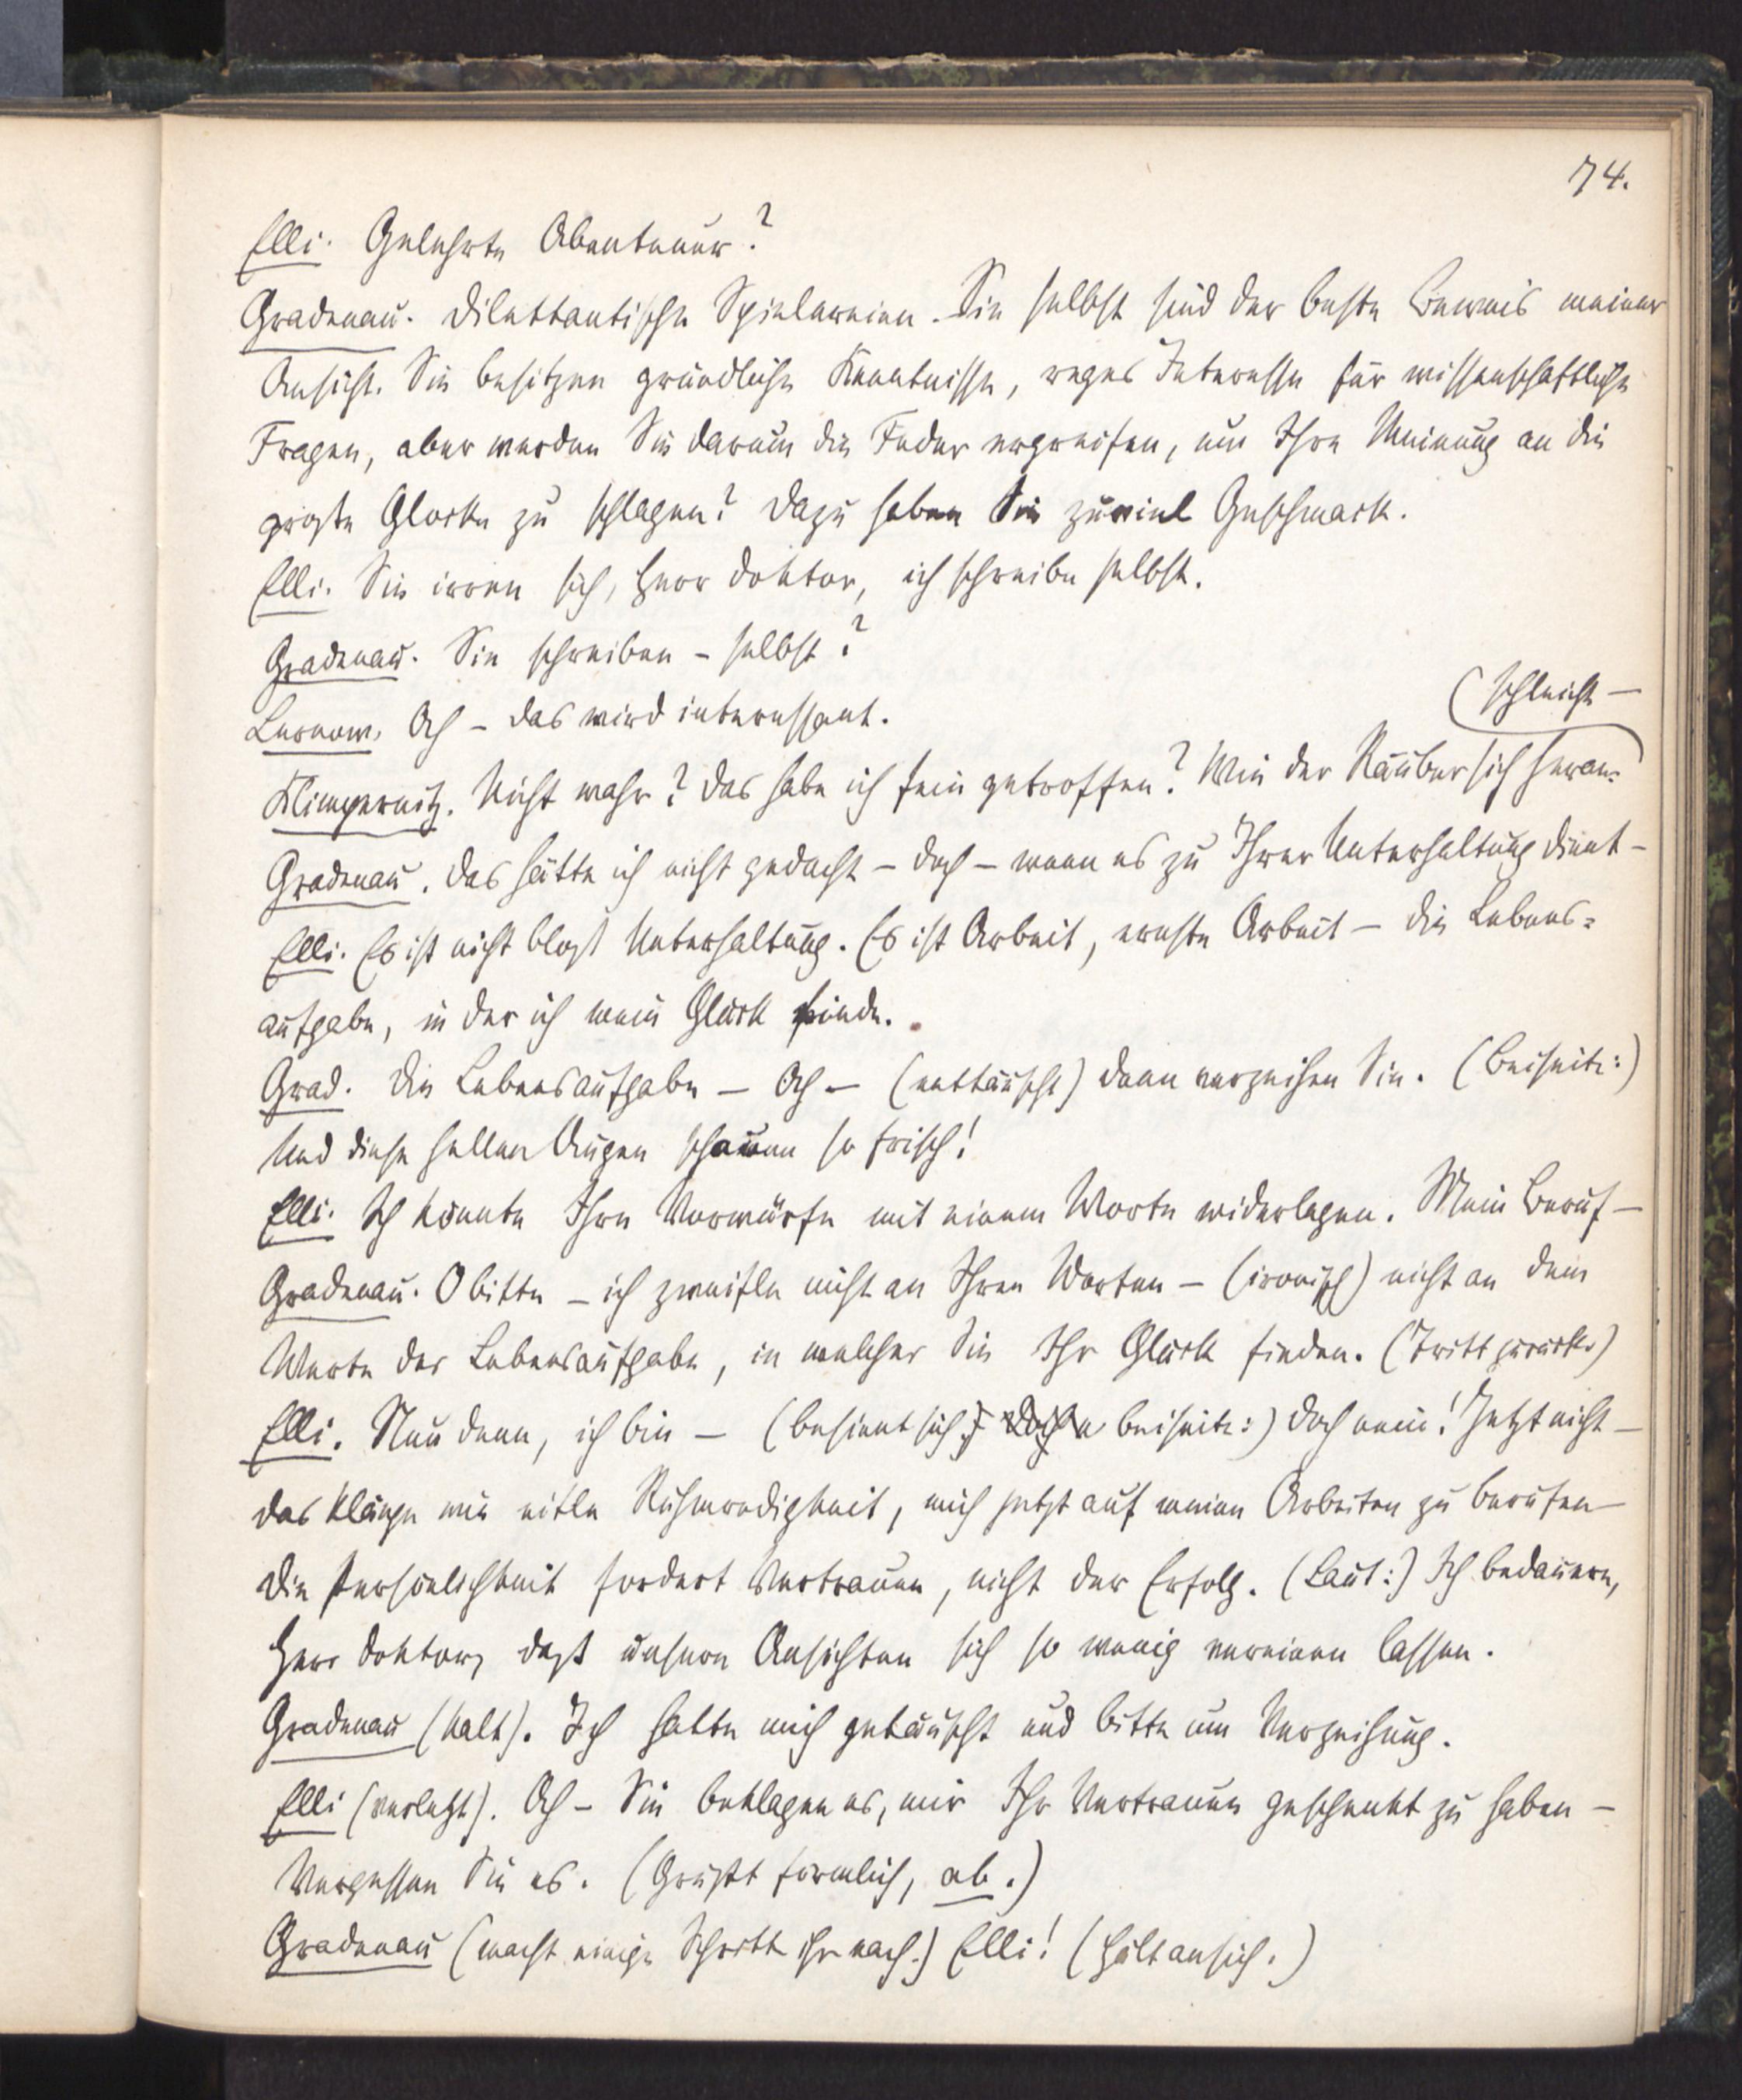 74.
Elli. Gelehrte Abenteuer?
Gradenau. Dilettantische Spielereien. Sie selbst sind der beste Beweis meiner
Ansicht. Sie besitzen gründliche Kenntnisse, reges Interesse für wissenschaftliche
Fragen, aber werden Sie darum die Feder ergreifen, um Ihre Meinung an die
große Glocke zu schlagen? Dazu haben Sie zuviel Geschmack.
Elli. Sie irren sich, Herr Doktor, ich schreibe selbst.
Gradenau. Sie schreiben – selbst?
Ach – das wird interessant.
(schleicht –
Klimpernitz. Nicht wahr? Das habe ich fein getroffen? Wie der Räuber sich heran=
Gradenau. Das hätte ich nicht gedacht – doch – wenn es zu Ihrer Unterhaltung dient –
Elli. Es ist nicht bloß Unterhaltung. Es ist Arbeit, ernste Arbeit – die Lebens=
aufgabe, in der ich mein Glück finde.
Grad. Die Lebensaufgabe – Ach – (enttäuscht) dann verzeihen Sie. (Beiseite:)
Und diese hellen Augen schauen so frisch!
Elli. Ich könnte Ihre Vorwürfe mit einem Worte widerlegen. Mein Beruf –
Gradenau. O bitte – ich zweifle nicht an Ihren Worten – (ironisch) nicht an dem
Werte der Lebensaufgabe, in welcher Sie Ihr Glück finden. (Tritt zurück.)
Elli. Nun denn, ich bin – (besinnt sich, beiseite:) Doch nein! Jetzt nicht –
das klänge wie eitle Ruhmredigkeit, mich jetzt auf meine Arbeiten zu berufen –
die Persönlichkeit fordert Vertrauen, nicht der Erfolg. (Laut:) Ich bedauere,
Herr Doktor, daß unsere Ansichten sich so wenig vereinen lassen.
Gradenau (kalt). Ich hatte mich getäuscht und bitte um Verzeihung.
Elli (verletzt). Ach – Sie beklagen es, mir Ihr Vertrauen geschenkt zu haben –
Vergessen Sie es. (Grüßt förmlich, ab.)
Gradenau (macht einige Schritt ihr nach.) Elli! (Hält an sich.)